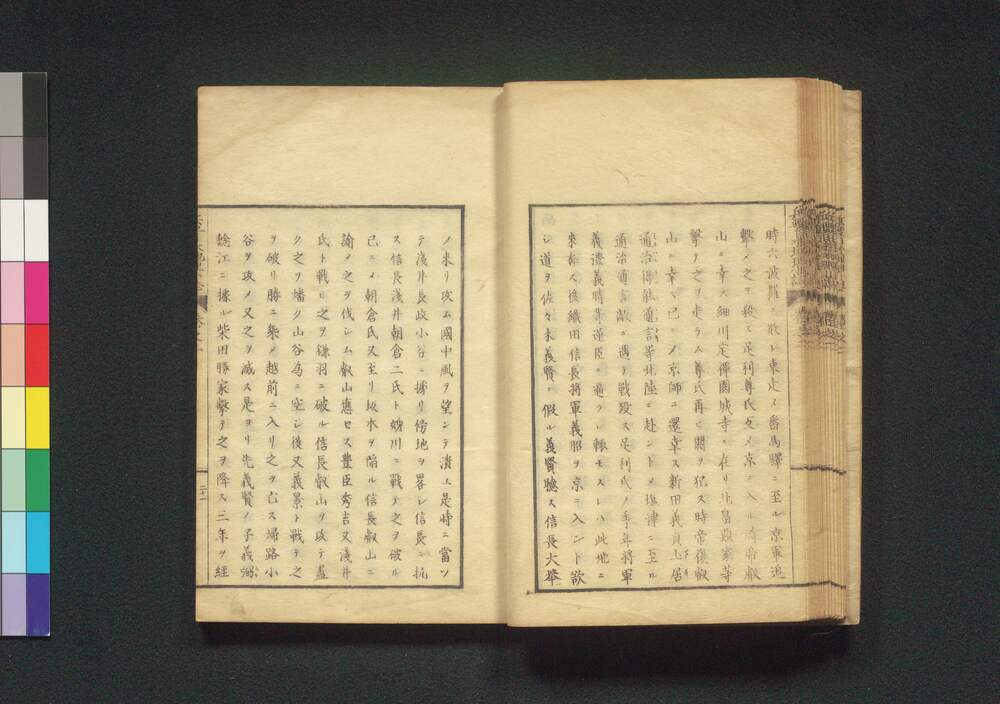 時六波羅ニ敗レ東走メ番馬驛ニ至ル京軍追
撃メ之ヲ殺ス足利尊氏反メ京ニ入ル帝叡
山ニ幸ス細川定禅園城寺ニ在リ北畠顯家等
撃テ之ヲ走ラス尊氏再ヒ闕ヲ犯ス時帝復叡
山ニ幸ス已ニメ京師ニ還幸ス新田義貞土居
通治得能通言等北陸ニ赴ントメ塩津ニ至ル
通治通言敵ニ遇テ戦殁ス足利氏ノ季年將軍
義澄義晴等逆臣ニ逼ラレ輙モスレハ此地ニ
来奔ス後織田信長將軍義昭ヲ京ニ入ント欲
シ道ヲ佐々木義賢ニ假ル義賢聴ス信長大擧
ノ来リ攻ム國中風ヲ望ンテ潰ユ是時ニ當ツ
テ淺井長政小谷ニ據リ傍地ヲ畧シ信長ニ抗
ス信長淺井朝倉二氏ト姉川ニ戰テ之ヲ破ル
已ニメ朝倉氏又至リ坂本ヲ陥ル信長叡山ニ
諭メ之ヲ伐シム叡山應セス豊臣秀吉又淺井
氏ト戰ヒ之ヲ鎌羽ニ破ル信長叡山ヲ攻テ盡
ク之ヲ燔ク山谷為ニ空シ後又義景ト戰テ之
ヲ破リ勝ニ乗メ越前ニ入リ之ヲ亡ス歸路小
谷ヲ攻メ又之ヲ滅ス是ヨリ先義賢ノ子義弼
鯰江ニ據ル柴田勝家撃テ之ヲ降ス三年ヲ經